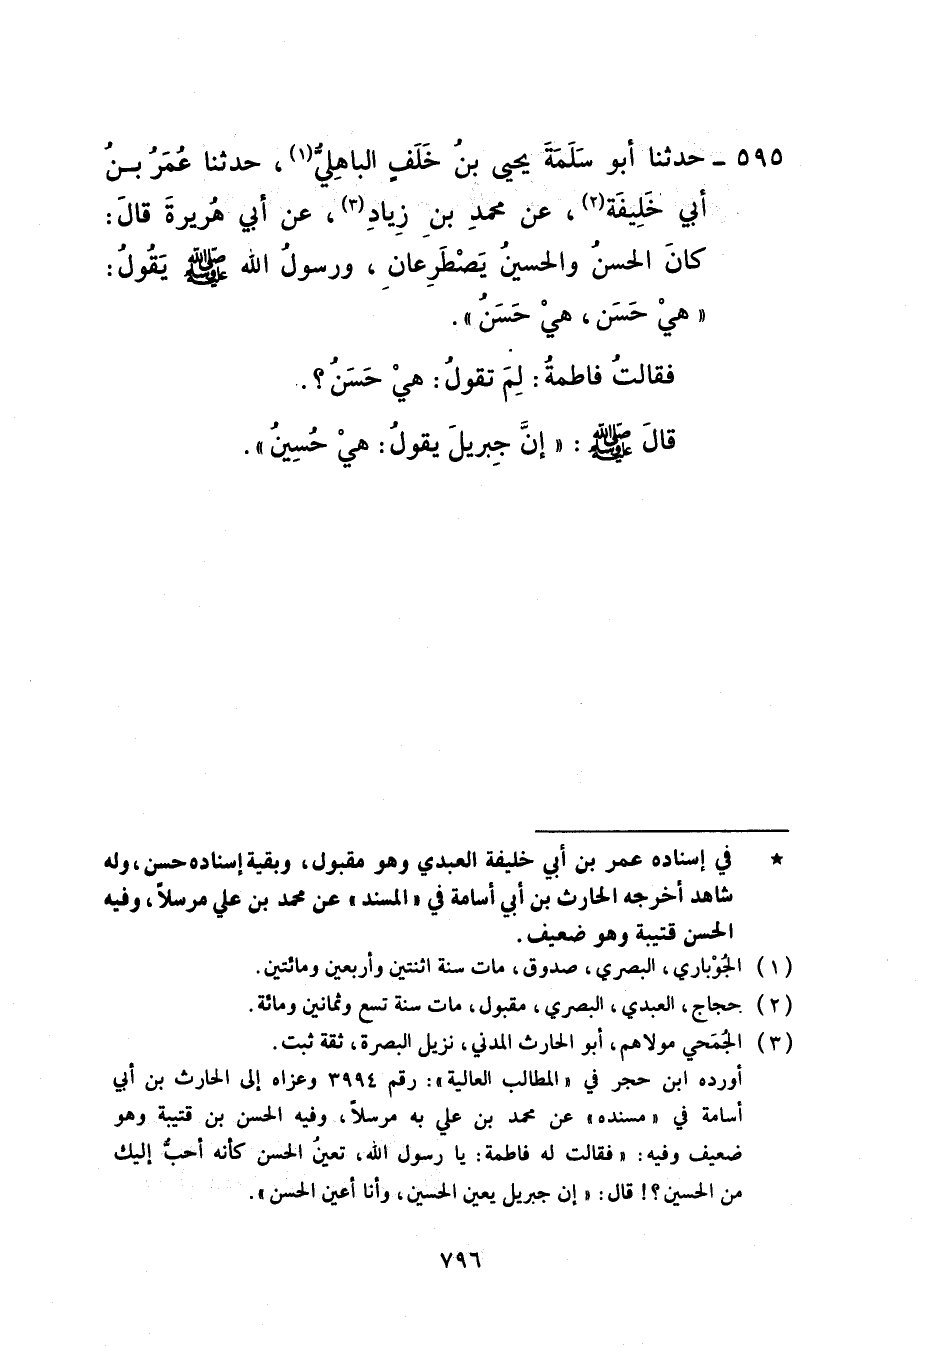 ٥٩٥ ـ حدثنا أبو سَلَمَةَ يحيى بنُ خَلَفٍ الباهِليُّ(١)، حدثنا عُمَرُ بـنُ
أبي خَلِيفَة(٢)، عن محمدِ بن زِيادِ(٣)، عن أبي هُريرةَ قالَ:
كانَ الحسنُ والحسينُ يَصْطَرِعانِ، ورسولُ الله ﷺ يَقُولُ:
« هيْ حَسَن، هيْ حَسَنُ».
فقالتُ فاطمةُ: لِمَ تقولُ: هيْ حَسَنُ؟.
قالَ ﷺ: « إنَّ جِبريلَ يقولُ: هيْ حُسِينُ».
★ في إسناده عمر بن أبي خليفة العبدي وهو مقبول، وبقية إسناده حسن، وله
شاهد أخرجه الحارث بن أبي أسامة في «المسند» عن محمد بن علي مرسلاً، وفيه
الحسن قتيبة وهو ضعيف.
(١) الجُوْباري، البصري، صدوق، مات سنة اثنتين وأربعين ومائتين.
(٢) حجاج، العبدي، البصري، مقبول، مات سنة تسع وثمانين ومائة.
(٣) الجُمَحي مولاهم، أبو الحارث المدني، نزيل البصرة، ثقة ثبت.
أورده ابن حجر في «المطالب العالية»: رقم ٣٩٩٤ وعزاه إلى الحارث بن أبي
أسامة في «مسنده» عن محمد بن علي به مرسلاً، وفيه الحسن بن قتيبة وهو
ضعيف وفيه: « فقالت له فاطمة: يا رسول الله، تعينُ الحسن كأنه أحبُّ إليك
من الحسين؟! قال: « إن جبريل يعين الحسين، وأنا أعين الحسن».
٧٩٦